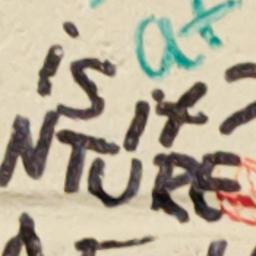 at
is it?
NTURE